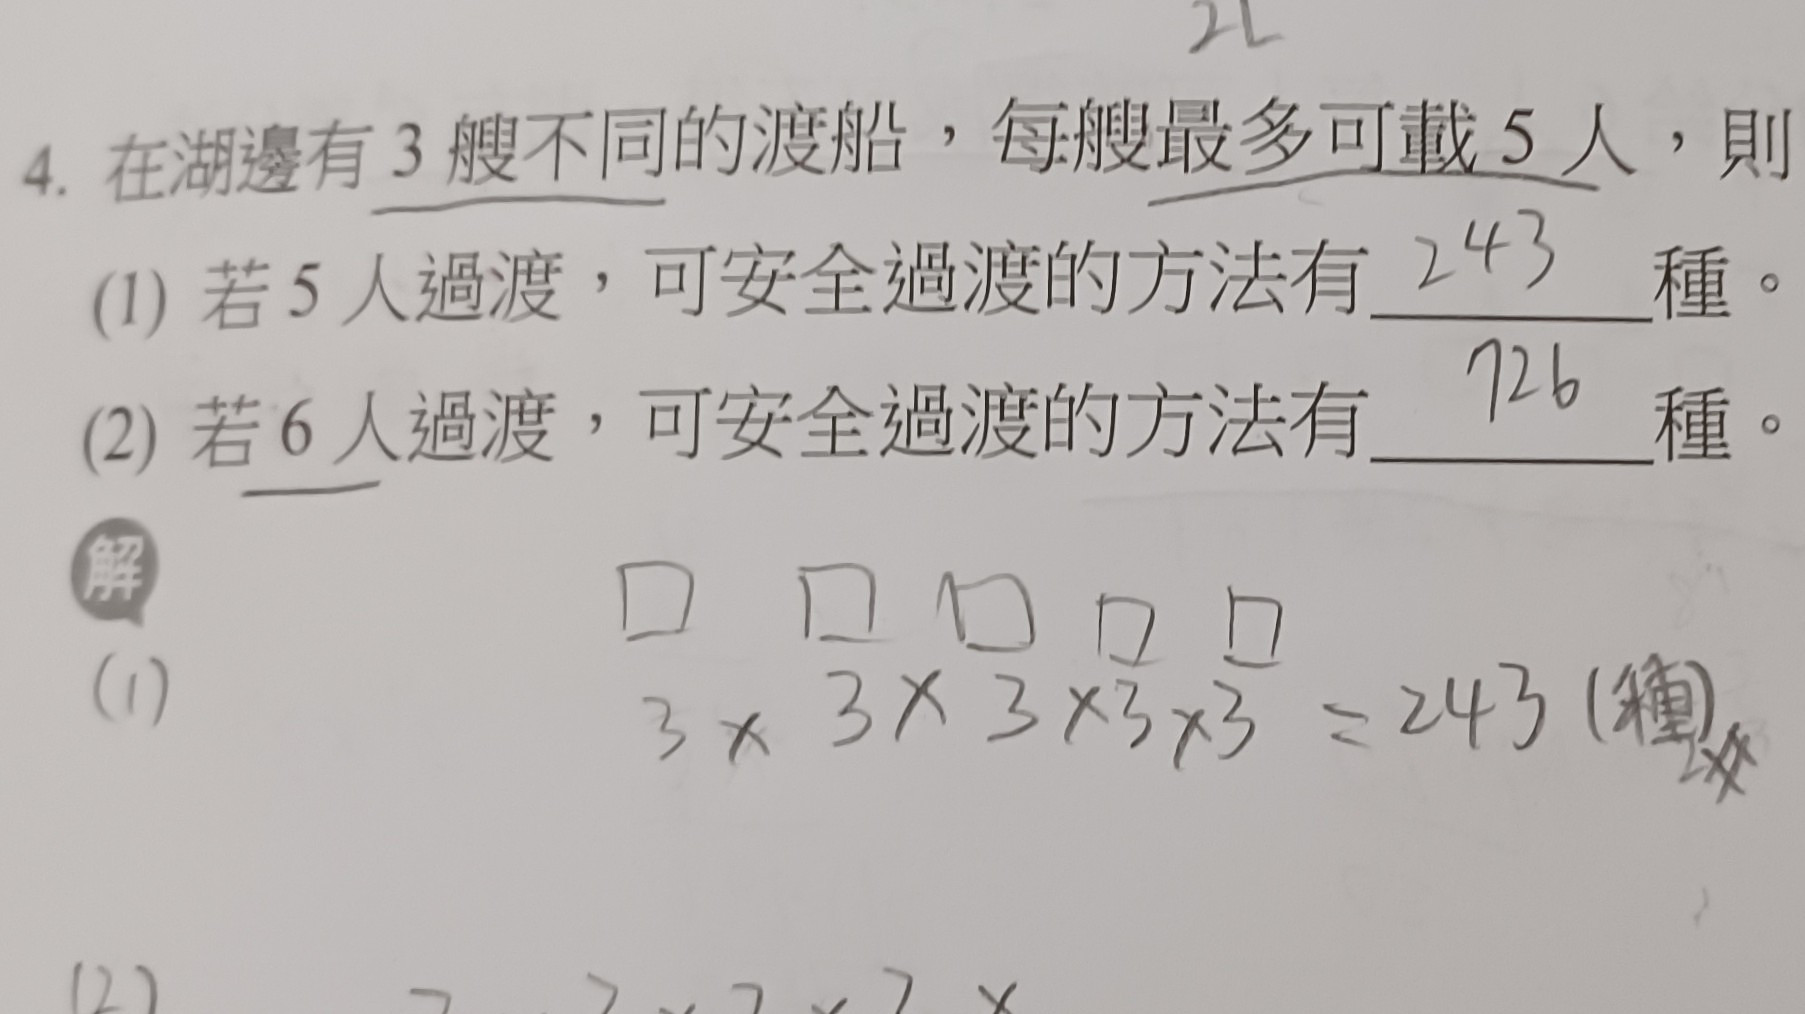 4. 在湖邊有 3 艘不同的渡船，每艘最多可載 5 人，則
(1) 若 5 人過渡，可安全過渡的方法有 243 種。
(2) 若 6 人過渡，可安全過渡的方法有 726 種。
解
(1)
□ □ □ □ □
3 × 3 × 3 × 3 × 3 = 243 (種)
(2) 3 3 × 3 × 3 ×